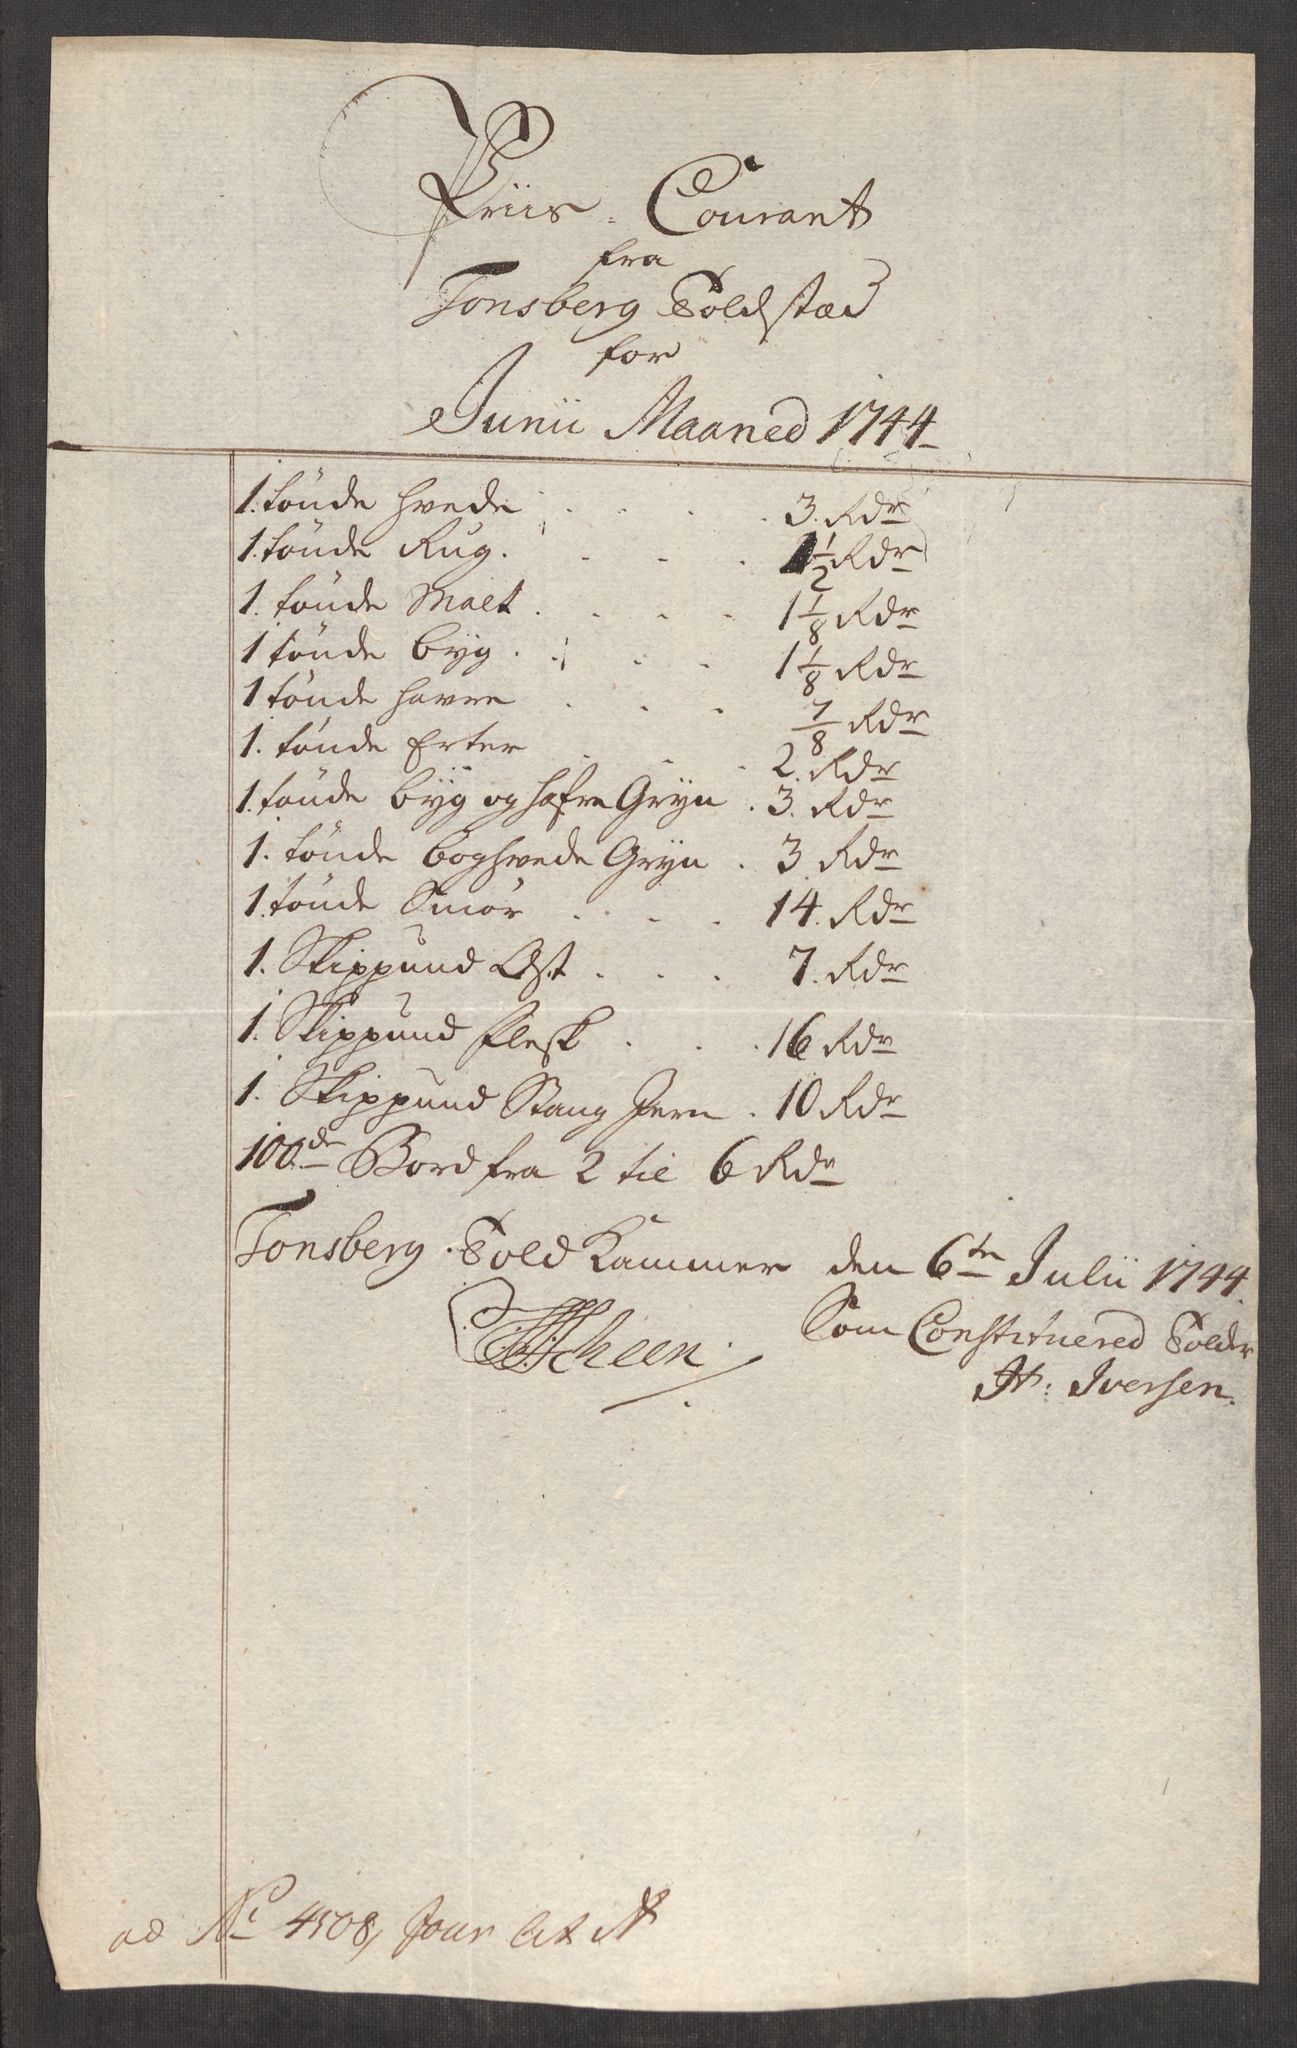 Priis-Courant
fra
Tonsberg Toldstæd
for
Junii Maaned 1744
1. tönde hvede . . . . 3. Rdr
1. tönde Rug. . . . 1 1/2 Rdr
1. tönde Malt . . . . 1 1/8 Rdr
1 tönde byg . . . . 1 1/8 Rdr
1 tönde havre . . . 7/8 Rdr
1. tönde Erter . . . 2. Rdr
1. tönde byg og hafre Gryn . 3. Rdr
1. tönde boghvede Gryn . 3. Rdr
1. tönde Smör . . . 14. Rdr
1. Skippund Ost . . . 7. Rdr
1. Skippund flesk . . . 16 Rdr
1. Skippund Stang Jern . 10 Rdr
100de Bord fra 2 til 6 Rdr
Tonsberg Told Kammer den 6te Julii 1744.
Som Constituered Tolder
Scheen.
Iversen.
ad No 4508, Jour Lit A